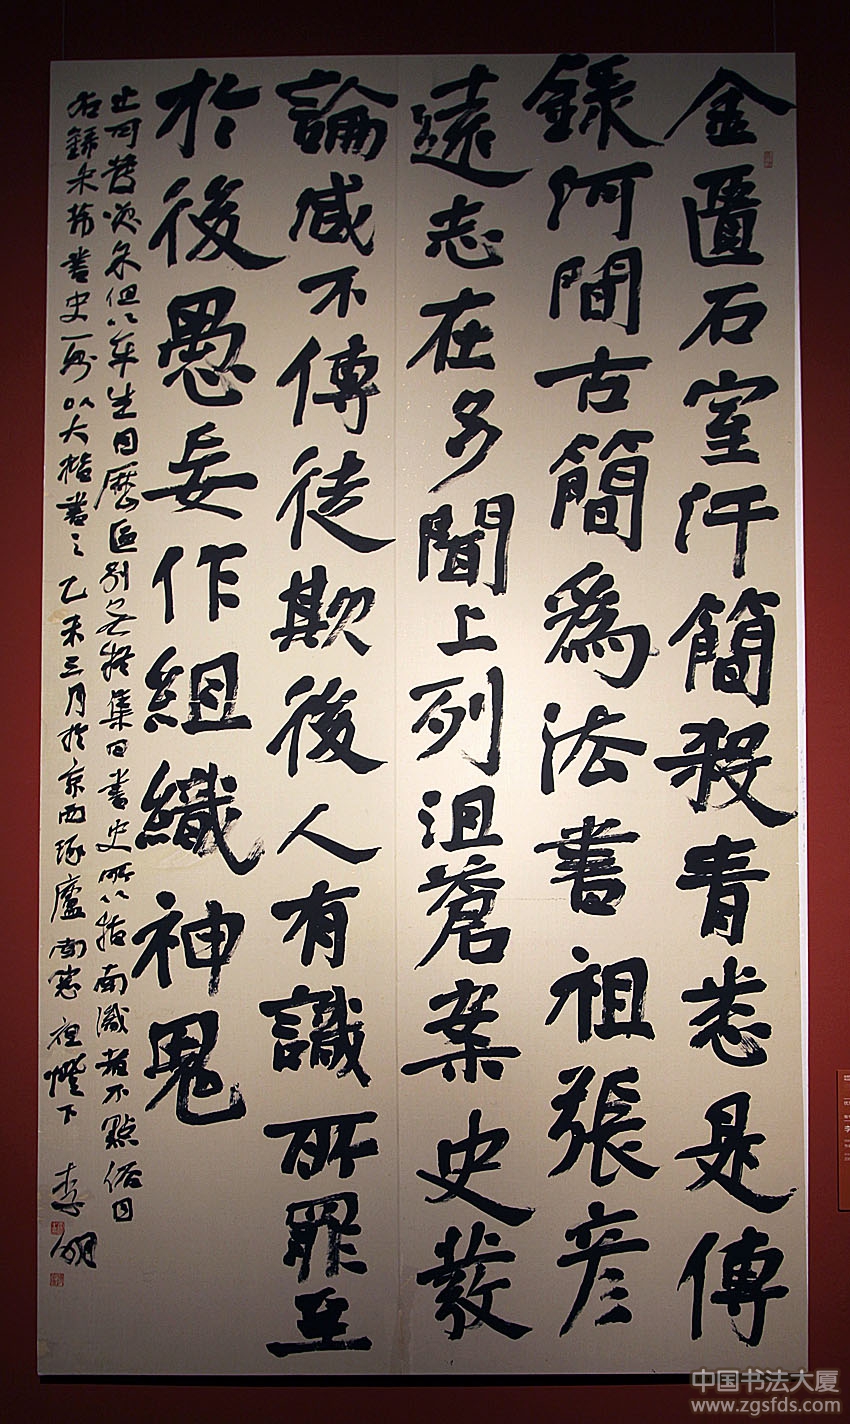 金匱石室汗簡殺青悉是傳
錄河間古簡爲法書祖張彥
遠志在多聞上列沮蒼案史發
論咸不傳徒欺後人有識所罪至
於後愚妄作組織神鬼
止可發笑余但以平生目歷區別無疑集曰書史所以指南識者不點俗目
右錄米芾書史一則以大楷書之乙未三月於京西琢廬南窓祖燈下 李明
中国书法大厦
www.zgsfds.com